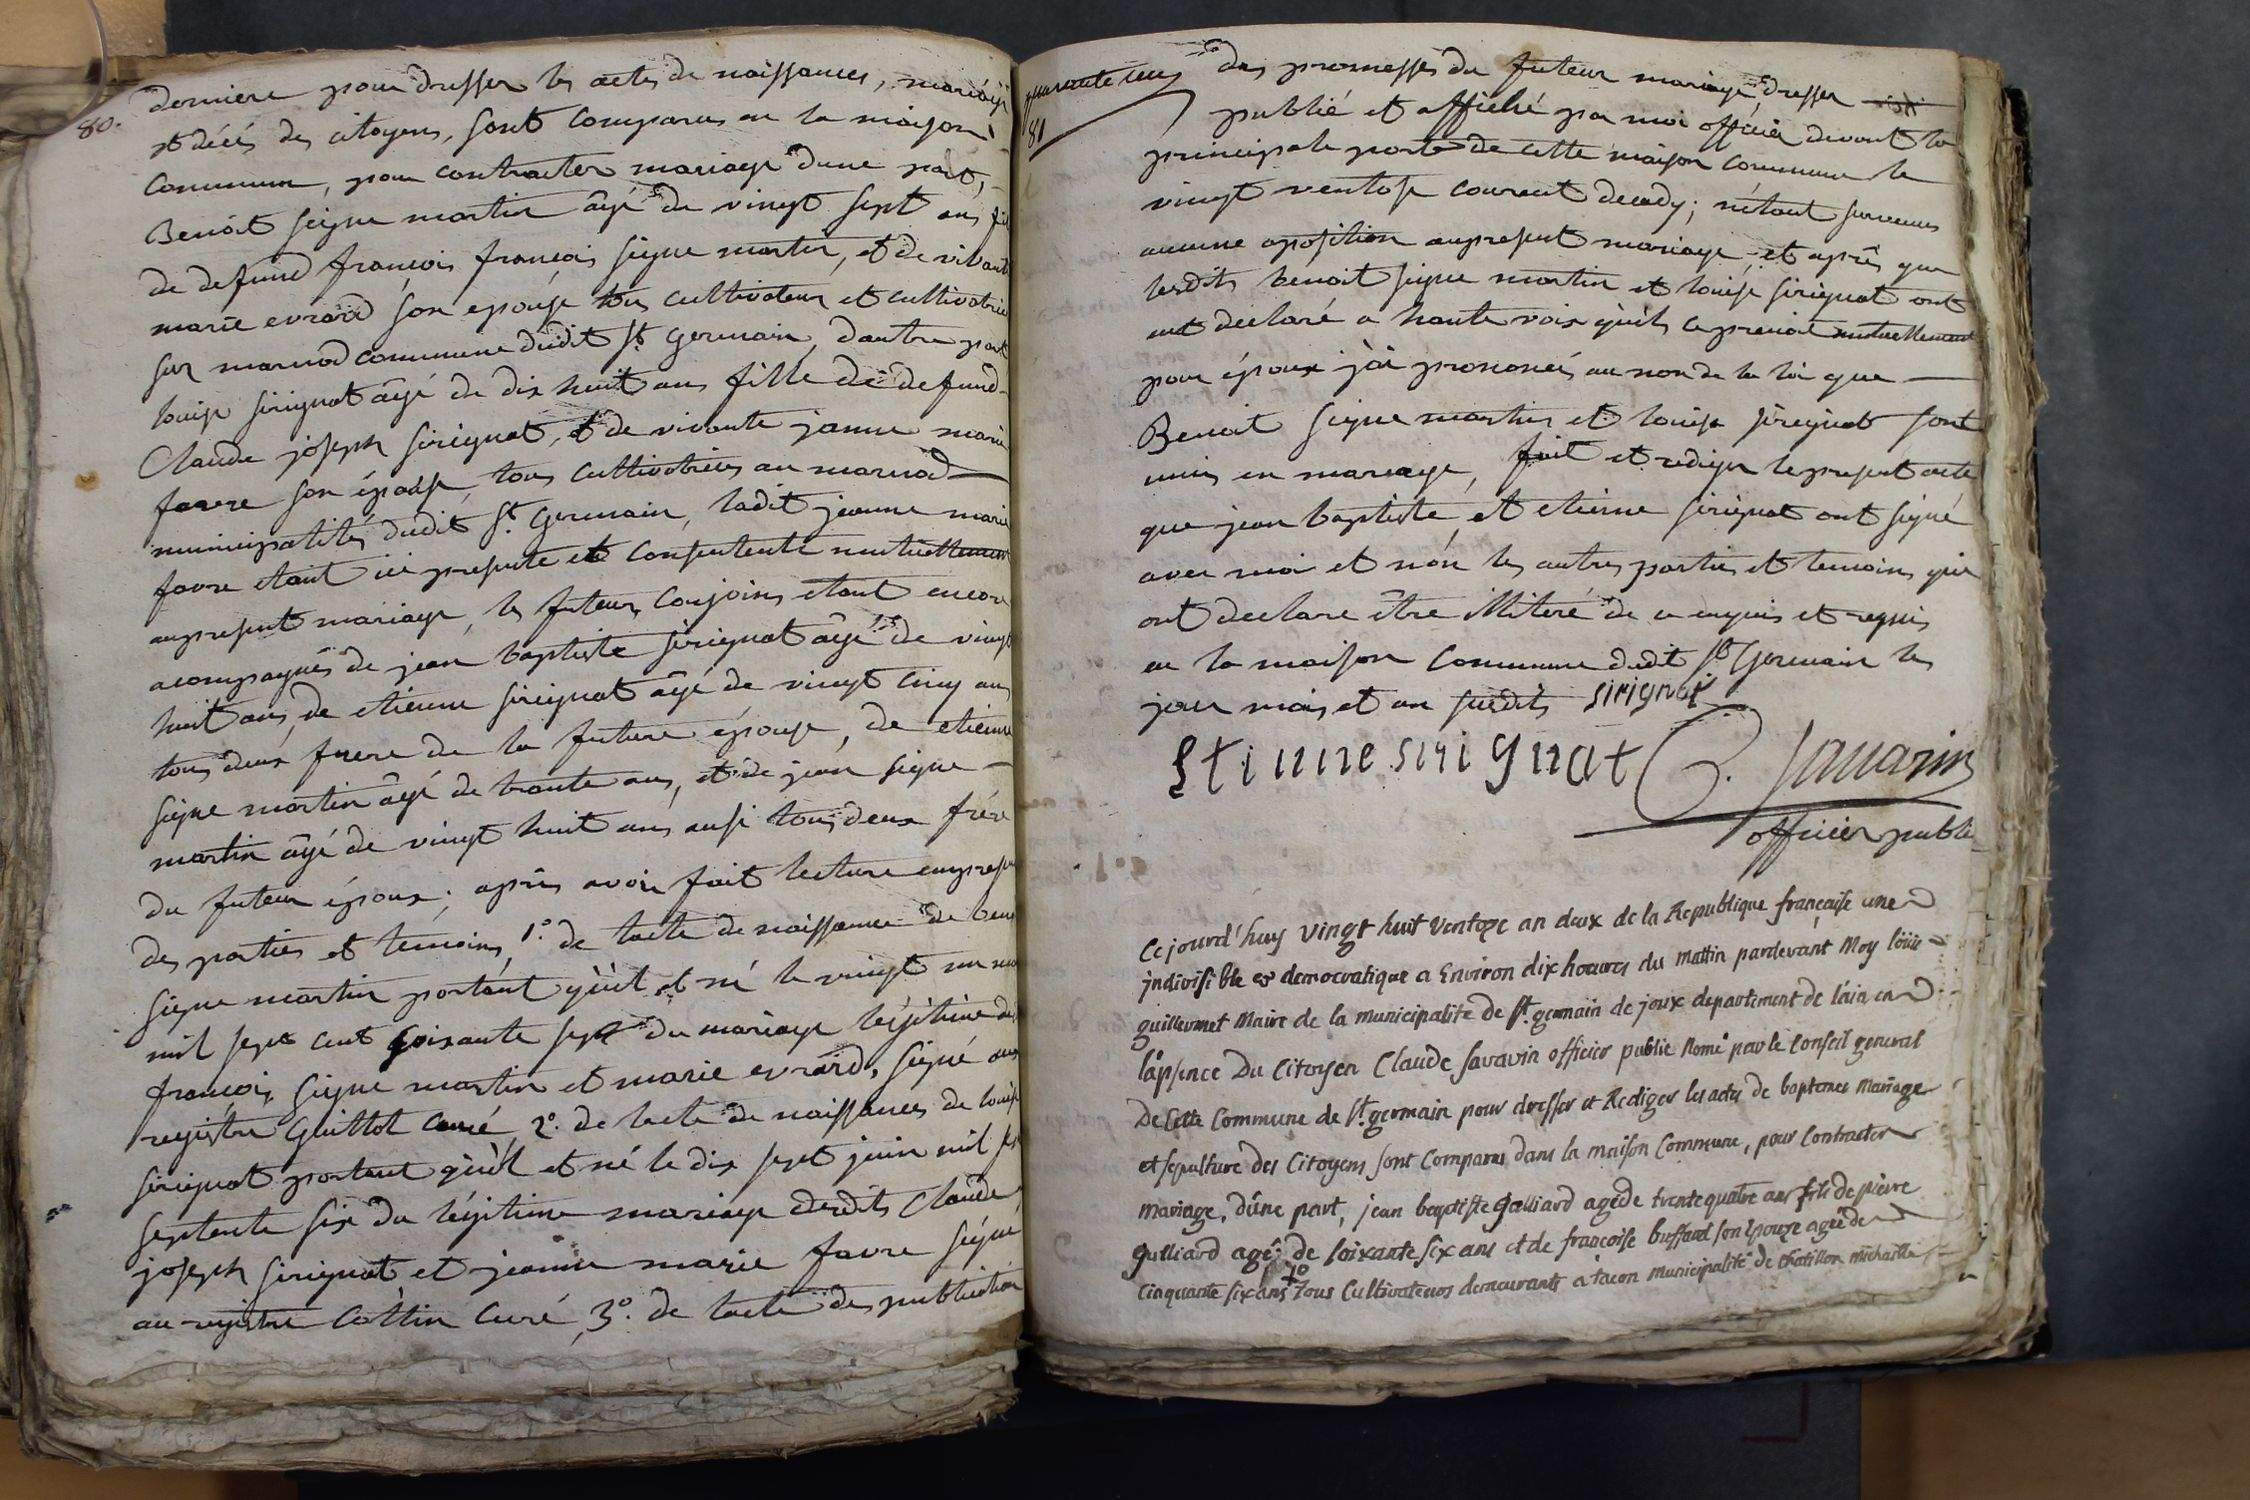 80.
derniere pour dresser les actes de naissances, mariage
et décés des citoyens, sont comparus en la maison
commune, pour contracter mariage dune part,
Benoit seigne martin âgé de vingt sept ans fils
de defund françois françois seigne martin, et de vivante
marie evrard son epouse tous cultivateur et cultivatrice
sur marnod commune dudit St germain, dautre part
louise sirignat âgé de dix huit ans fille de defund
Claude joseph sirignat, et de vivante janne marie
favre son épouse, tous cultivatrices au marnod
municipalités dudit St Germain, ladit jeanne marie
favre etant ici presente et consentente mutuellement
aupresent mariage, les futeurs conjoins etant encore
acompagnés de jean baptiste sirignat âgé de vingt
huit ans, de etienne sirignat âgé de vingt cinq ans
tous deux frere de la future épouse, de etienne
seigne martin âgé de trante ans, et de jean seigne
martin âgé de vingt huit ans ausi tous deux frére
du futeur époux; après avoir fait lecture enpresen
des parties et temoins, 1° de lacte de naissance de ben
seigne martin portant qùil et né le vingt un
mil sept cent soixante sept du mariage légitime de
françois seigne martin et marie evrard, signé aux
registre Guillot curé, 2° de lacte de naissances de louise
sirignat portant qùil et né le dix sept juin mil sept
septente six du légitime mariage desdits Claude
joseph sirignat et jeanne marie favre signé
au registre Collin curé, 3° de lacte des publication
81
des promesses du futeur mariage, dresser
publié et affiché par moi officier devant la
principale porte de cette maison commune le
vingt ventose courant decady; nétant survenues
aucune oposition aupresent mariage, et après que
lesdits benoit seigne martin et louise sirignat ont
ont declaré a haute voix qùils ce prenoit mutuellement
pour époux jài prononcés au non de la loi que
Benoit seigne martin et louise sirignat sont
unis en mariage, fait et rediger le present acte
que jean baptiste et etienne sirignat ont signé
avec moi et nón les autres parties et temoins qui
ont declare être illiteré de ce enquis et requis
en la maison commune dudit St Germain les
jour mois et an susdits sirignat
Etiunne sirignat C. Savarin
officier public
Cejourd'huy vingt huit Ventoze an deux de la Republique françaisе une
indivisible et democratique a Environ dix heures du mattin pardevant Moy loüis
guillermet Maire de la municipalité de St germain de joux departement de l'ain en
l'apsence Du Citoyen Claude Savarin officier public Nomé par le Conseil general
De Cette Commune de St germain pour dresser et Rediger les actes de baptemes Mariage
et sepulture des Citoyens sont Comparus dans la maison Commune, pour Contracter
mariage, dûne part, jean baptiste galliard agé de trente quatre ans fils de pierre
galliard agé de soixante six ans et de francoise buffard son Epouze agée de
Cinquante six ans Tous Cultivateurs demeurants a tacon municipalité de Chatillon michaille